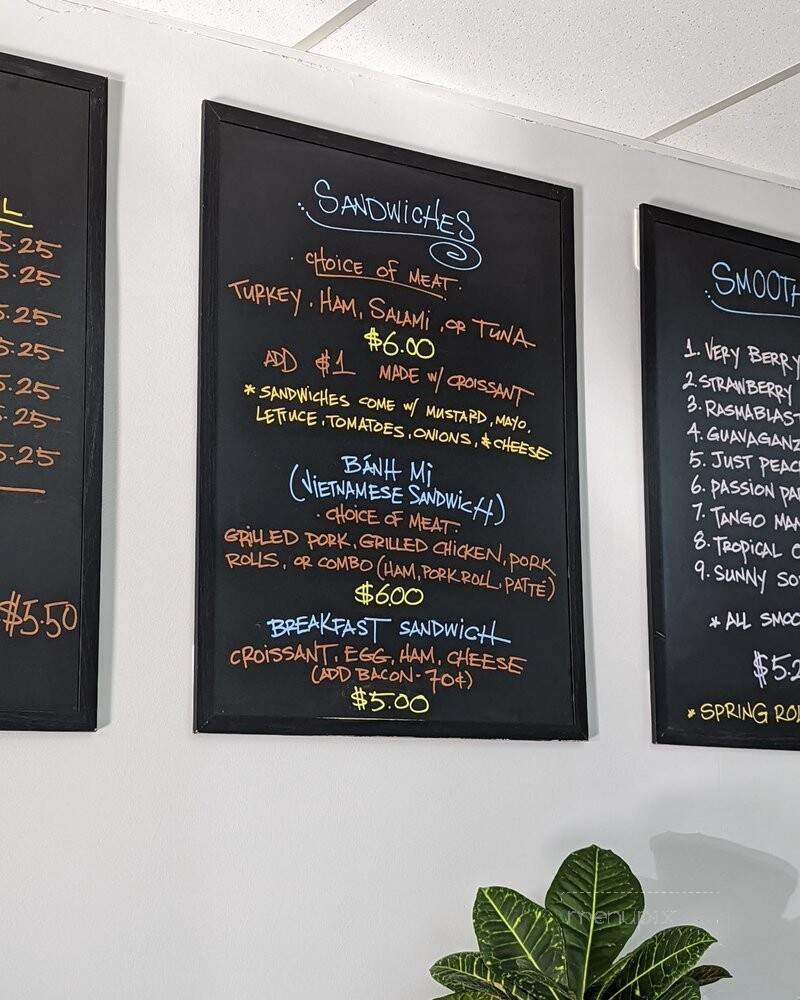 5.25
5.25
5.25
5.25
5.25
5.25
5.25
$5.50
SANDWICHES
CHOICE OF MEAT
TURKEY, HAM, SALAMI, OR TUNA
$6.00
ADD $1 MADE W/ CROISSANT
* SANDWICHES COME W/ MUSTARD, MAYO,
LETTUCE, TOMATOES, ONIONS, & CHEESE
BÁNH MÌ
(VIETNAMESE SANDWICH)
CHOICE OF MEAT
GRILLED PORK, GRILLED CHICKEN, PORK
ROLLS, OR COMBO (HAM, PORK ROLL, PATTÉ)
$6.00
BREAKFAST SANDWICH
CROISSANT, EGG, HAM, CHEESE
(ADD BACON - 70¢)
$5.00
SMOOTH
1. VERY BERRY
2 STRAWBERRY
3. RASMABLAST
4. GUAVAGANZ
5. JUST PEAC
6. PASSION PA
7. TANGO MAN
8. TROPICAL
9. SUNNY SO
* ALL SMOO
$5.2
* SPRING ROL
menupix